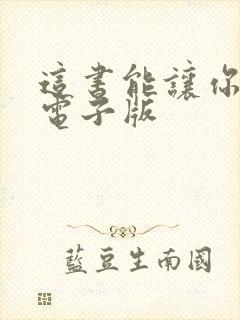 這書能讓你
電子版
藍豆生南國